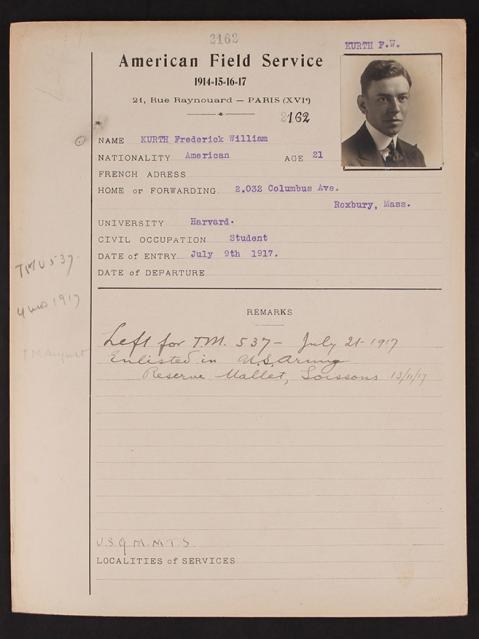 2162
KURTH F.W.
American Field Service
1914-15-16-17
21, Rue Raynouard — PARIS (XVIe)
2162
NAME KURTH Frederick William
NATIONALITY American AGE 21
FRENCH ADRESS
HOME or FORWARDING 2,032 Columbus Ave.
Roxbury, Mass.
UNIVERSITY Harvard.
CIVIL OCCUPATION Student
DATE of ENTRY July 9th 1917.
DATE of DEPARTURE
TMU 537.
4 mo 1917
REMARKS
Left for T.M. 537 - July 21 - 1917
Enlisted in U.S. Army
Reserve Mallet, Soissons 13/11/17
U.S.Q M.M.T.S
LOCALITIES of SERVICES